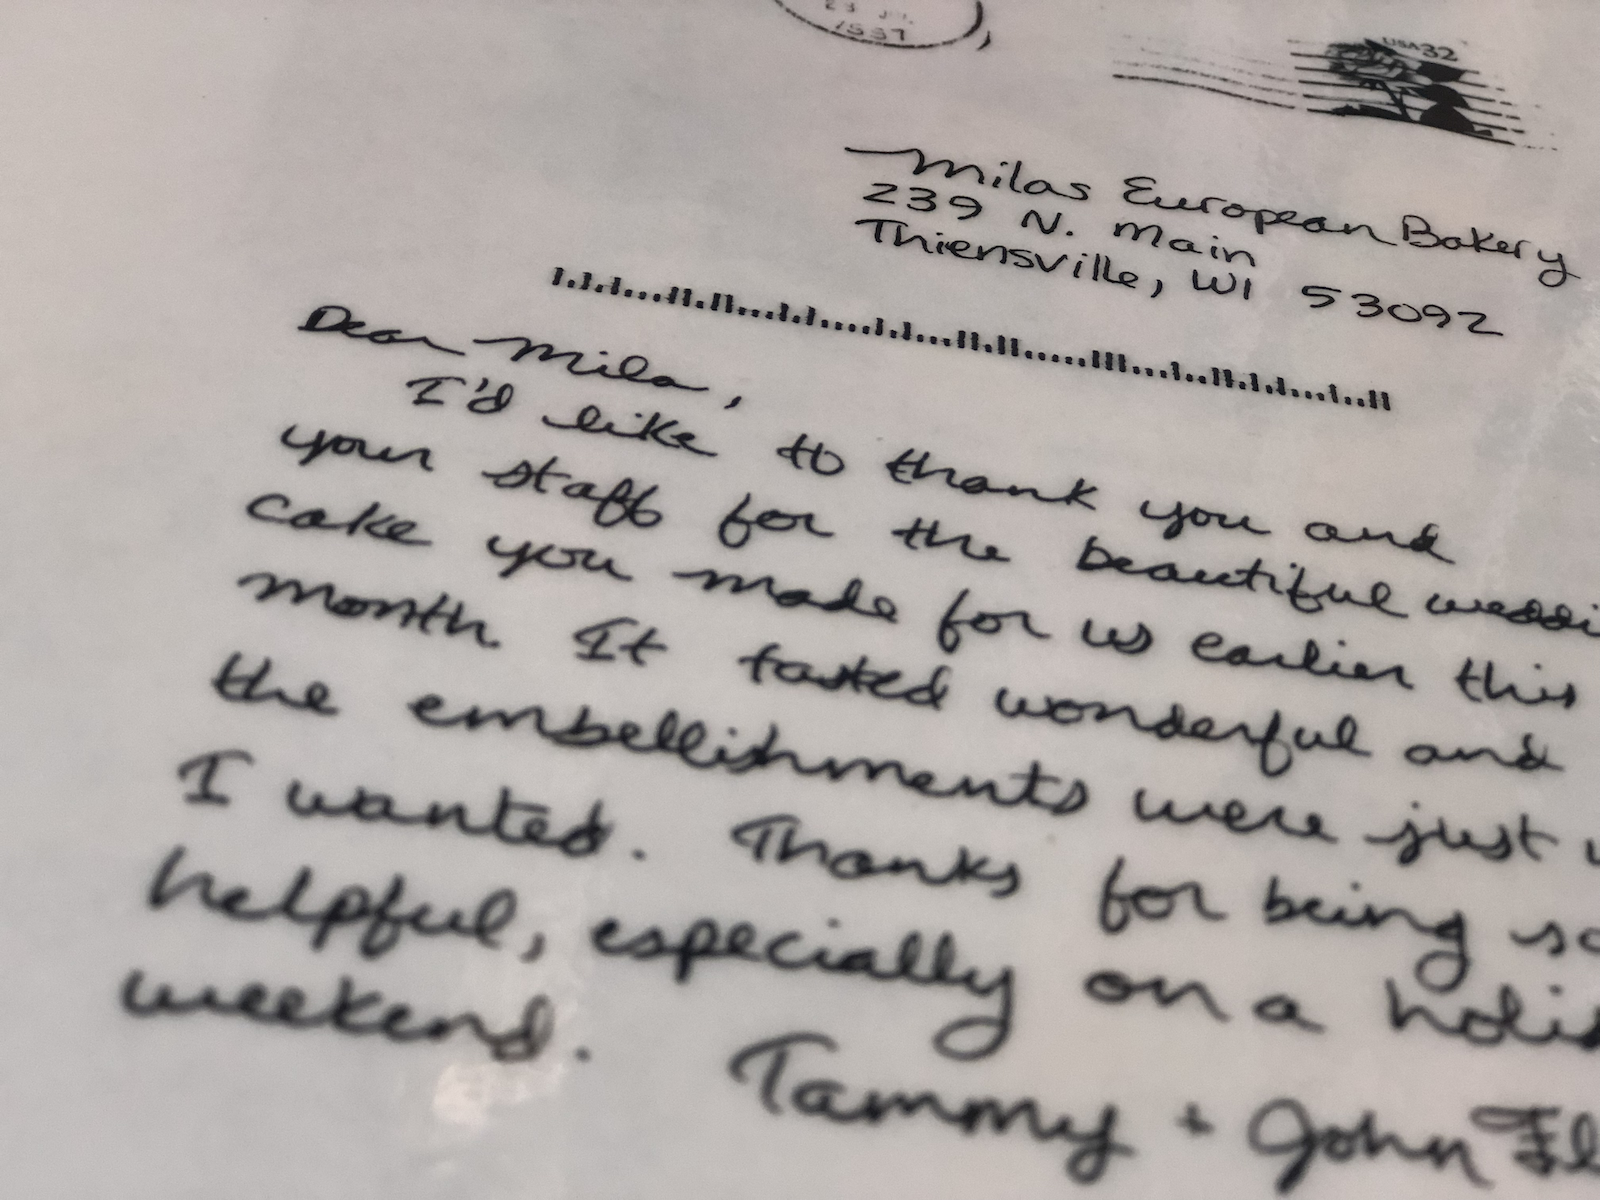 23 JUL
1997
USA 32
Milas European Bakery
239 N. Main
Thiensville, WI 53092
Dear Mila,
I'd like to thank you and
your staff for the beautiful weddi
cake you made for us earlier this
month. It tasted wonderful and
the embellishments were just
I wanted. Thanks for being so
helpful, especially on a holid
weekend.
Tammy + John Fl